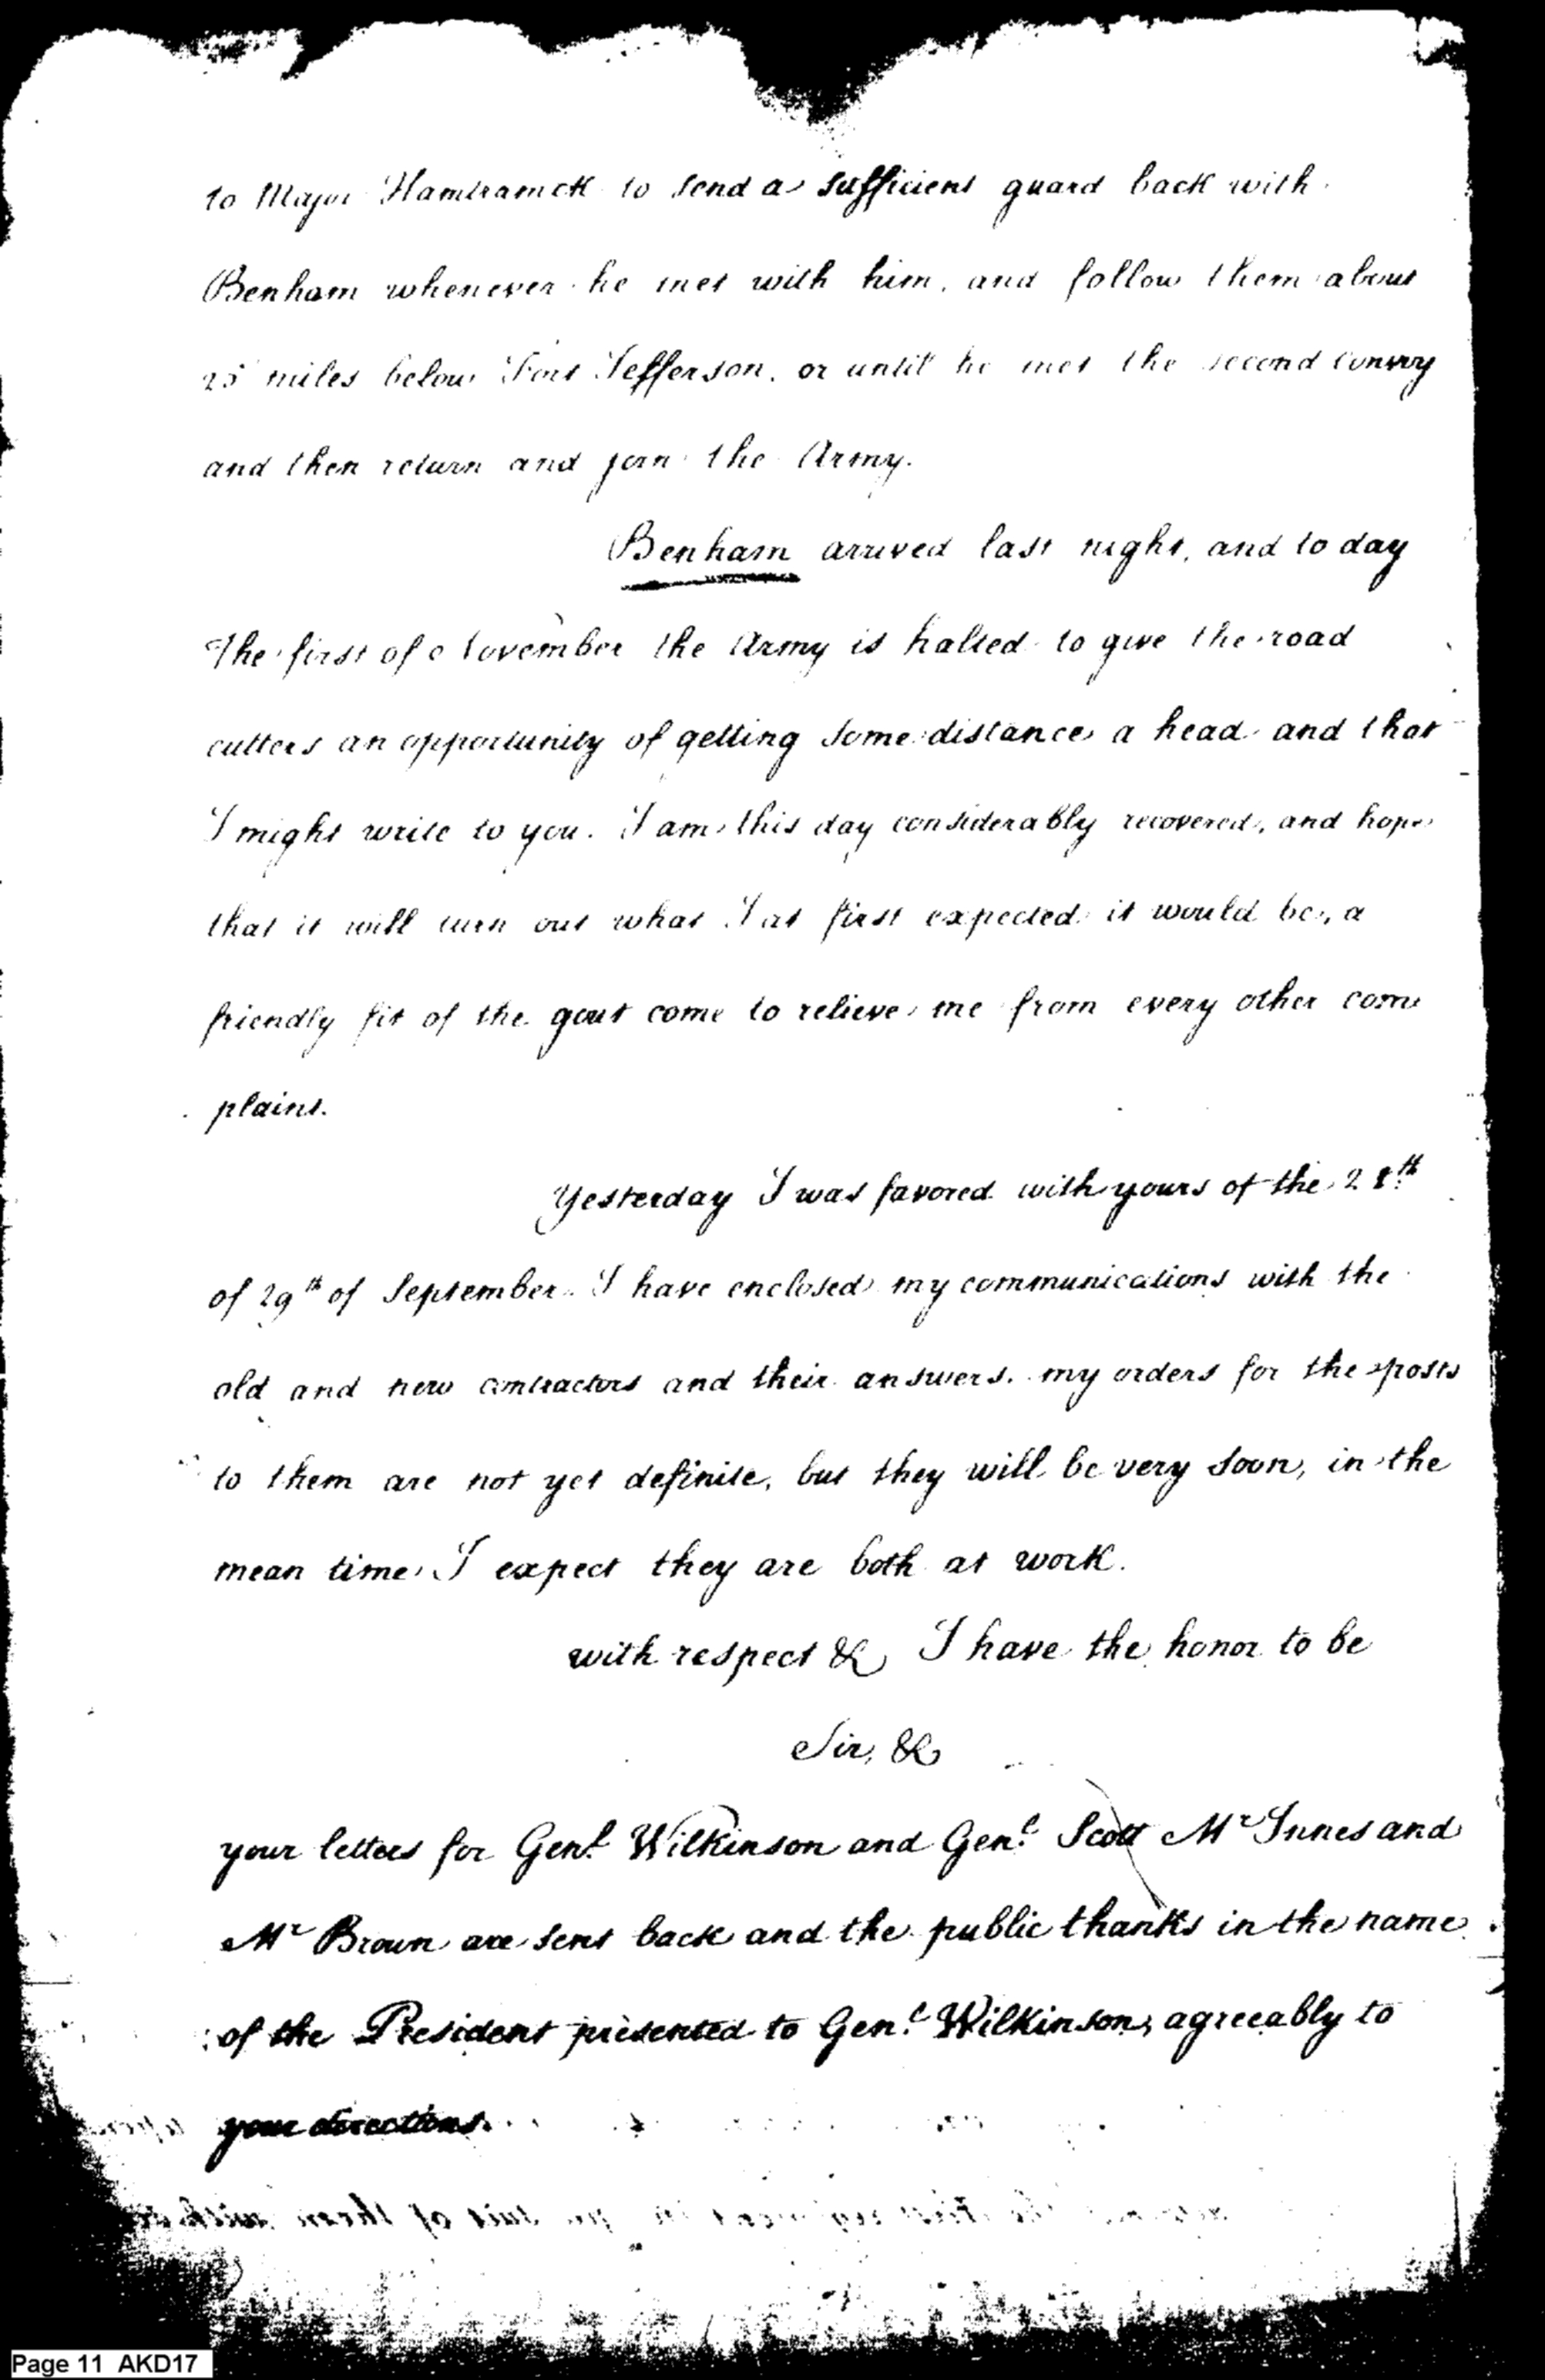 to Major Hamtramck to send a sufficient guard back with
Benham whenever he met with him, and follow them about
25 miles below Fort Jefferson, or until he met the second Convoy
and then return and join the Army.
Benham arrived last night, and to day
The first of November the Army is halted to give the road
cutters an opportunity of getting some distance a head and that
I might write to you. I am this day considerably recovered, and hope
that it will turn out what I at first expected it would be, a
friendly fit of the gout come to relieve me from every other com
plaint.
Yesterday I was favored with yours of the 28th
of 29th of September. I have enclosed my communications with the
old and new contractors and their answers. my orders for the posts
to them are not yet definite, but they will be very soon, in the
mean time I expect they are both at work.
with respect & I have the honor to be
Sir, &
your letters for Genl Wilkinson and Genl Scott Mr Innes and
Mr Brown are sent back and the public thanks in the name
of the President presented to Genl Wilkinson, agreeably to
your directions.
Page 11 AKD17